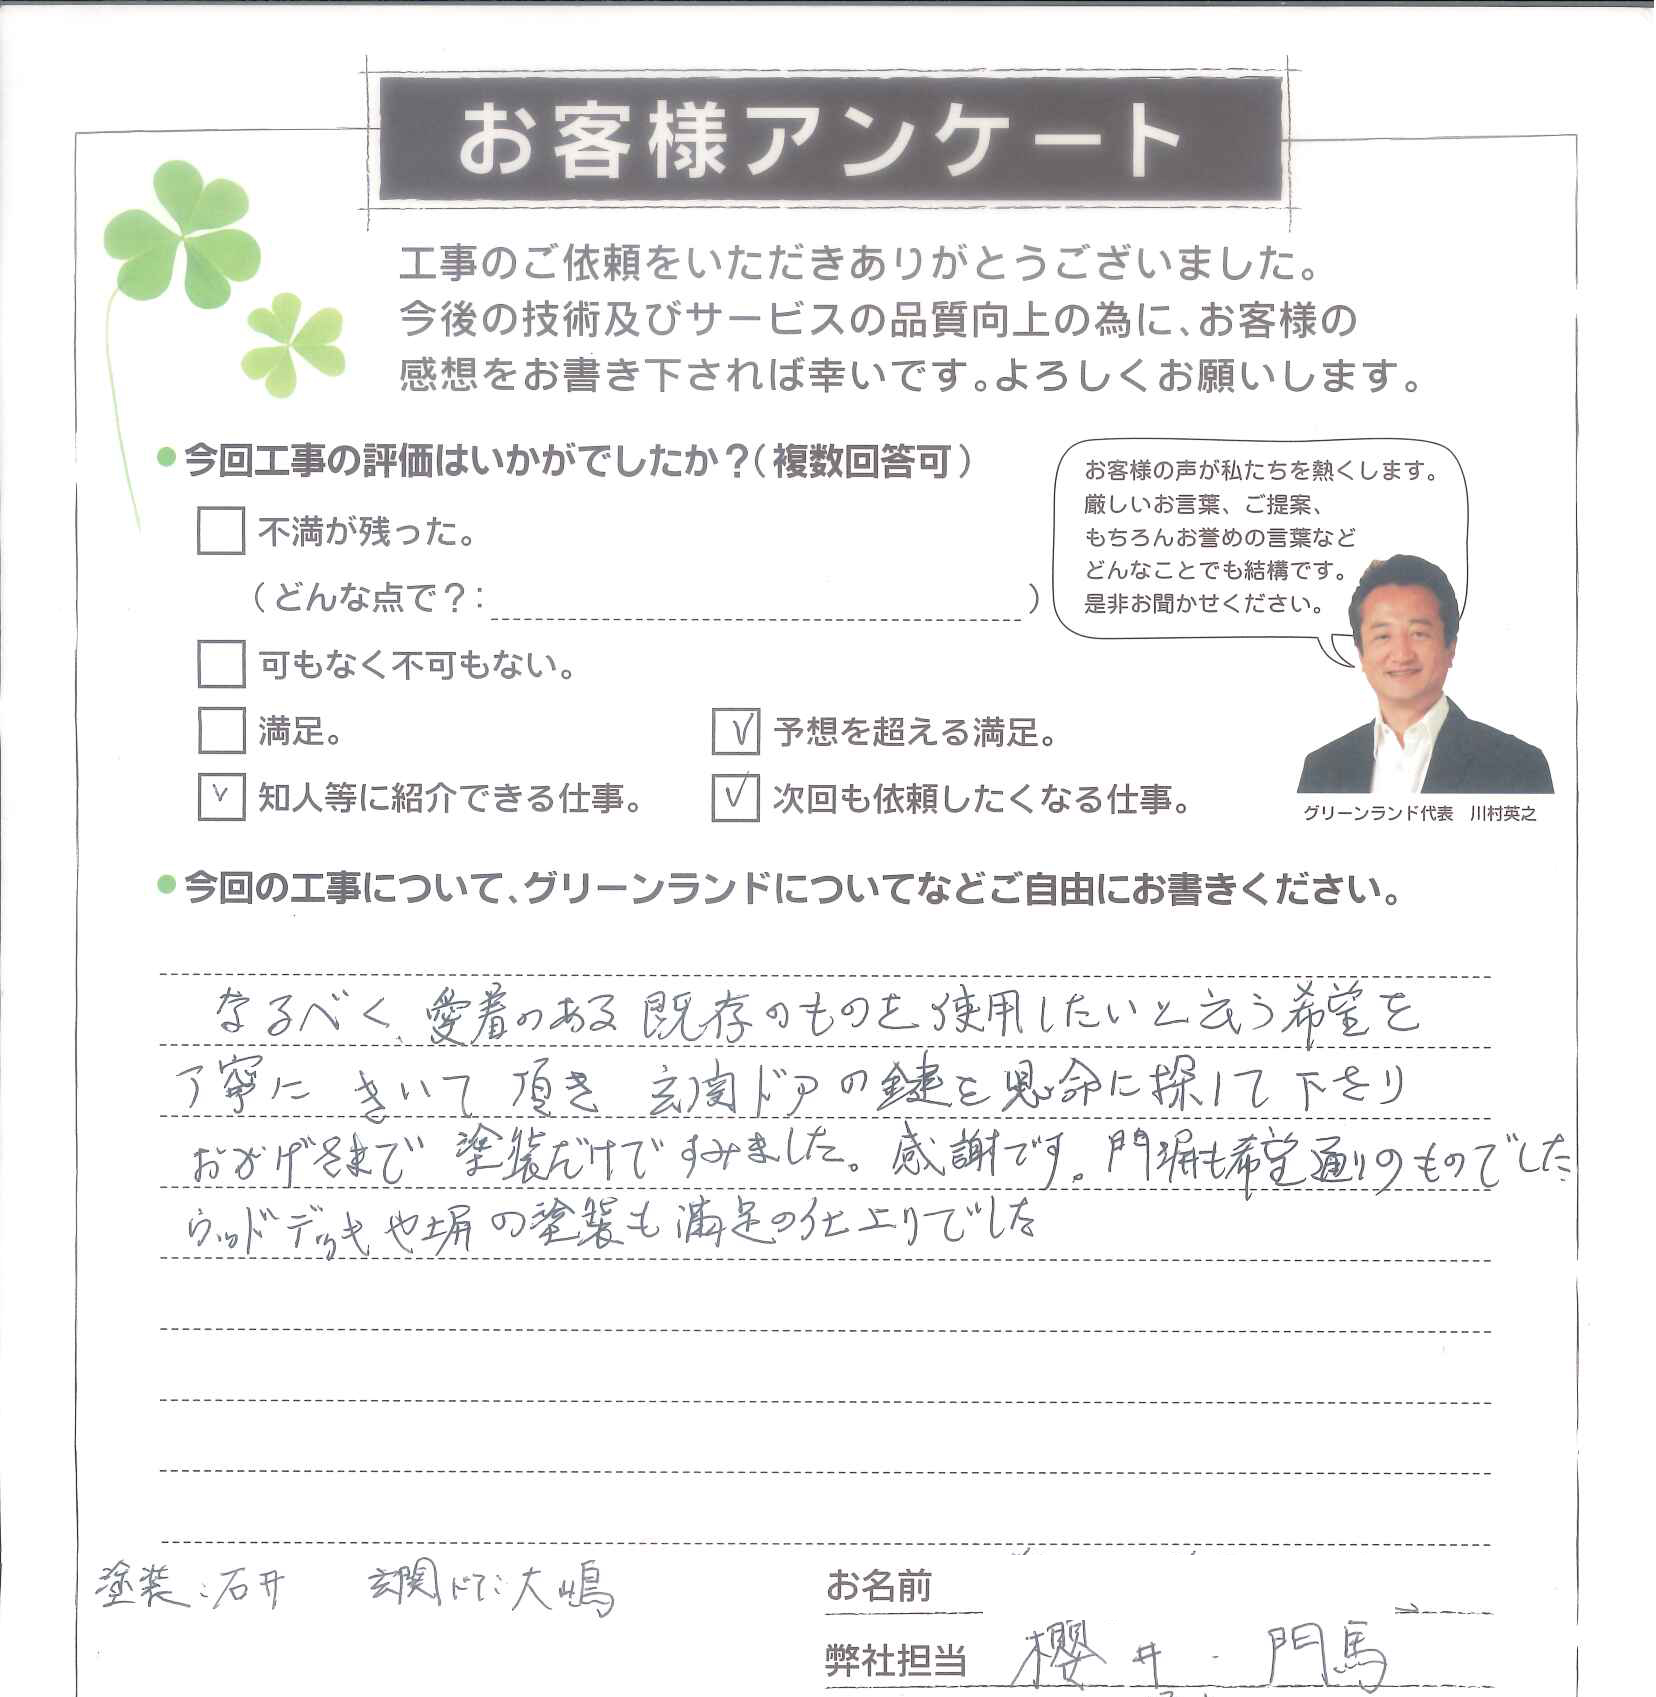 お客様アンケート
工事のご依頼をいただきありがとうございました。
今後の技術及びサービスの品質向上の為に、お客様の
感想をお書き下されば幸いです。よろしくお願いします。
●今回工事の評価はいかがでしたか？（複数回答可）
不満が残った。
（どんな点で？：　）
可もなく不可もない。
満足。
予想を超える満足。
知人等に紹介できる仕事。
次回も依頼したくなる仕事。
お客様の声が私たちを熱くします。
厳しいお言葉、ご提案、
もちろんお誉めの言葉など
どんなことでも結構です。
是非お聞かせください。
グリーンランド代表　川村英之
●今回の工事について、グリーンランドについてなどご自由にお書きください。
なるべく、愛着のある既存のものを使用したいと云う希望を
丁寧に きいて 頂き 玄関ドアの鍵を懸命に探して下さり
おかげさまで 塗装だけですみました。感謝です。門塀も希望通りのものでした
ウッドデッキや塀の塗装も満足の仕上りでした
塗装：石井　玄関ドア：大嶋
お名前
弊社担当 櫻井・門馬